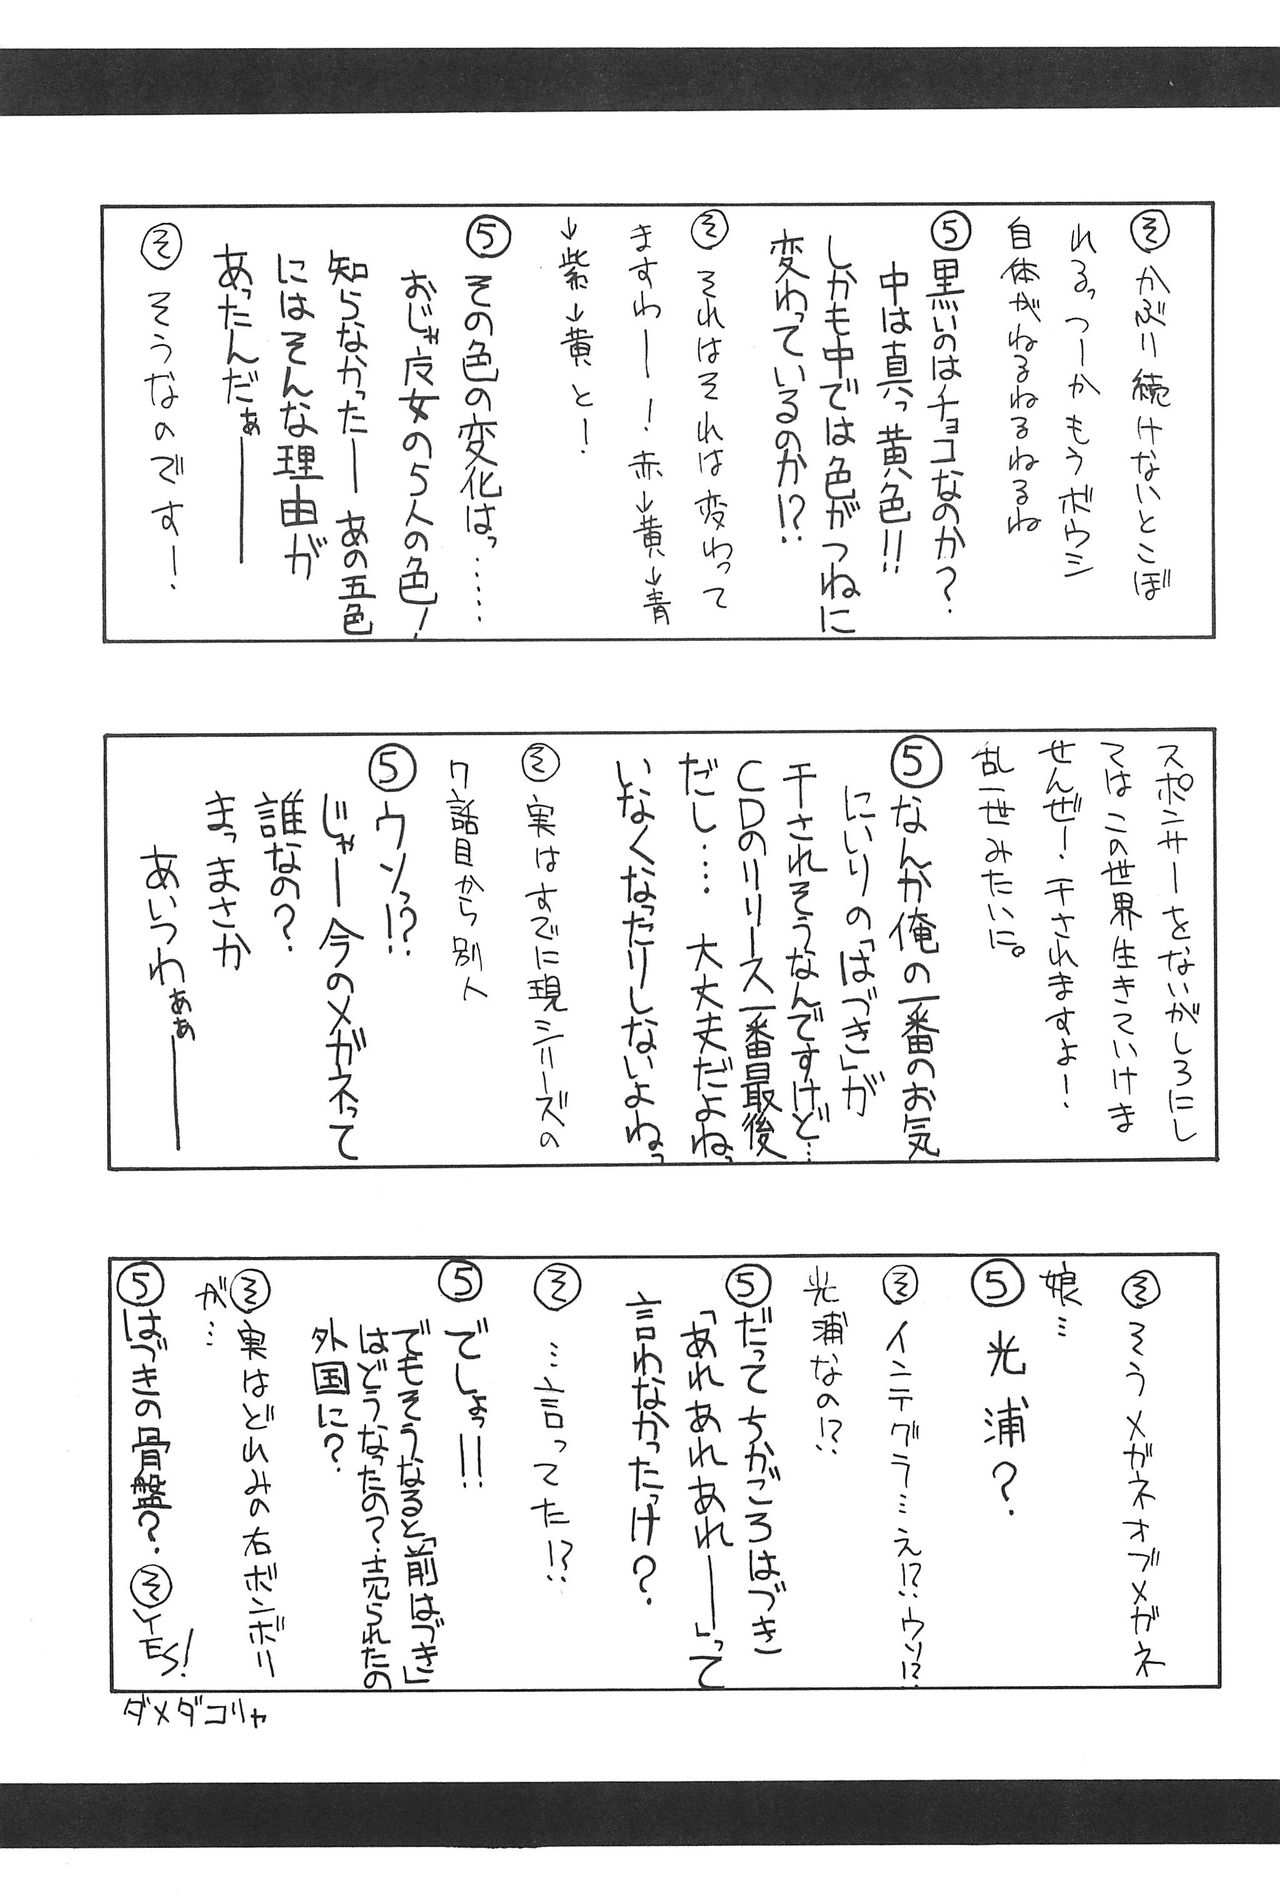 ㋞かぶり続けないとこぼ
れるっつーかもうボウシ
自体がねるねるねるね
⑤黒いのはチョコなのか？
中は真っ黄色!!
しかも中では色がつねに
変わっているのか!?
㋞それはそれは変わって
ますわー！赤→黄→青
→紫→黄と！
⑤その色の変化はっ……
おじゃ女の5人の色！
知らなかったー あの五色
にはそんな理由が
あったんだぁ――
㋞そうなのです！
スポンサーをないがしろにし
てはこの世界生きていけま
せんぜー・干されますよー！
乱一世みたいに。
⑤なんか俺の一番のお気
にいりの「はづき」が
干されそうなんですけど…
CDのリリース一番最後
だし… 大丈夫だよねっ
いなくなったりしないよねっ
㋞実はすでに現シリーズの
7話目から別人
⑤ウソっ!?
じゃー今のメガネって
誰なの？
まっまさか
あいつわぁぁ――
㋞そうメガネオブメガネ
娘…
⑤光浦？
㋞インテグラ…え!?ウソ!?
光浦なの!?
⑤だってちかごろはづき
「あれあれあれあれー」って
言わなかったっけ？
㋞…言ってた!?
⑤でしょっ!!
でもそうなると「前はづき」
はどうなったの？売られたの
外国に？
㋞実はどれみの右ボンボリ
が…
⑤はづきの骨盤？ ㋞YES!
ダメダコリャ